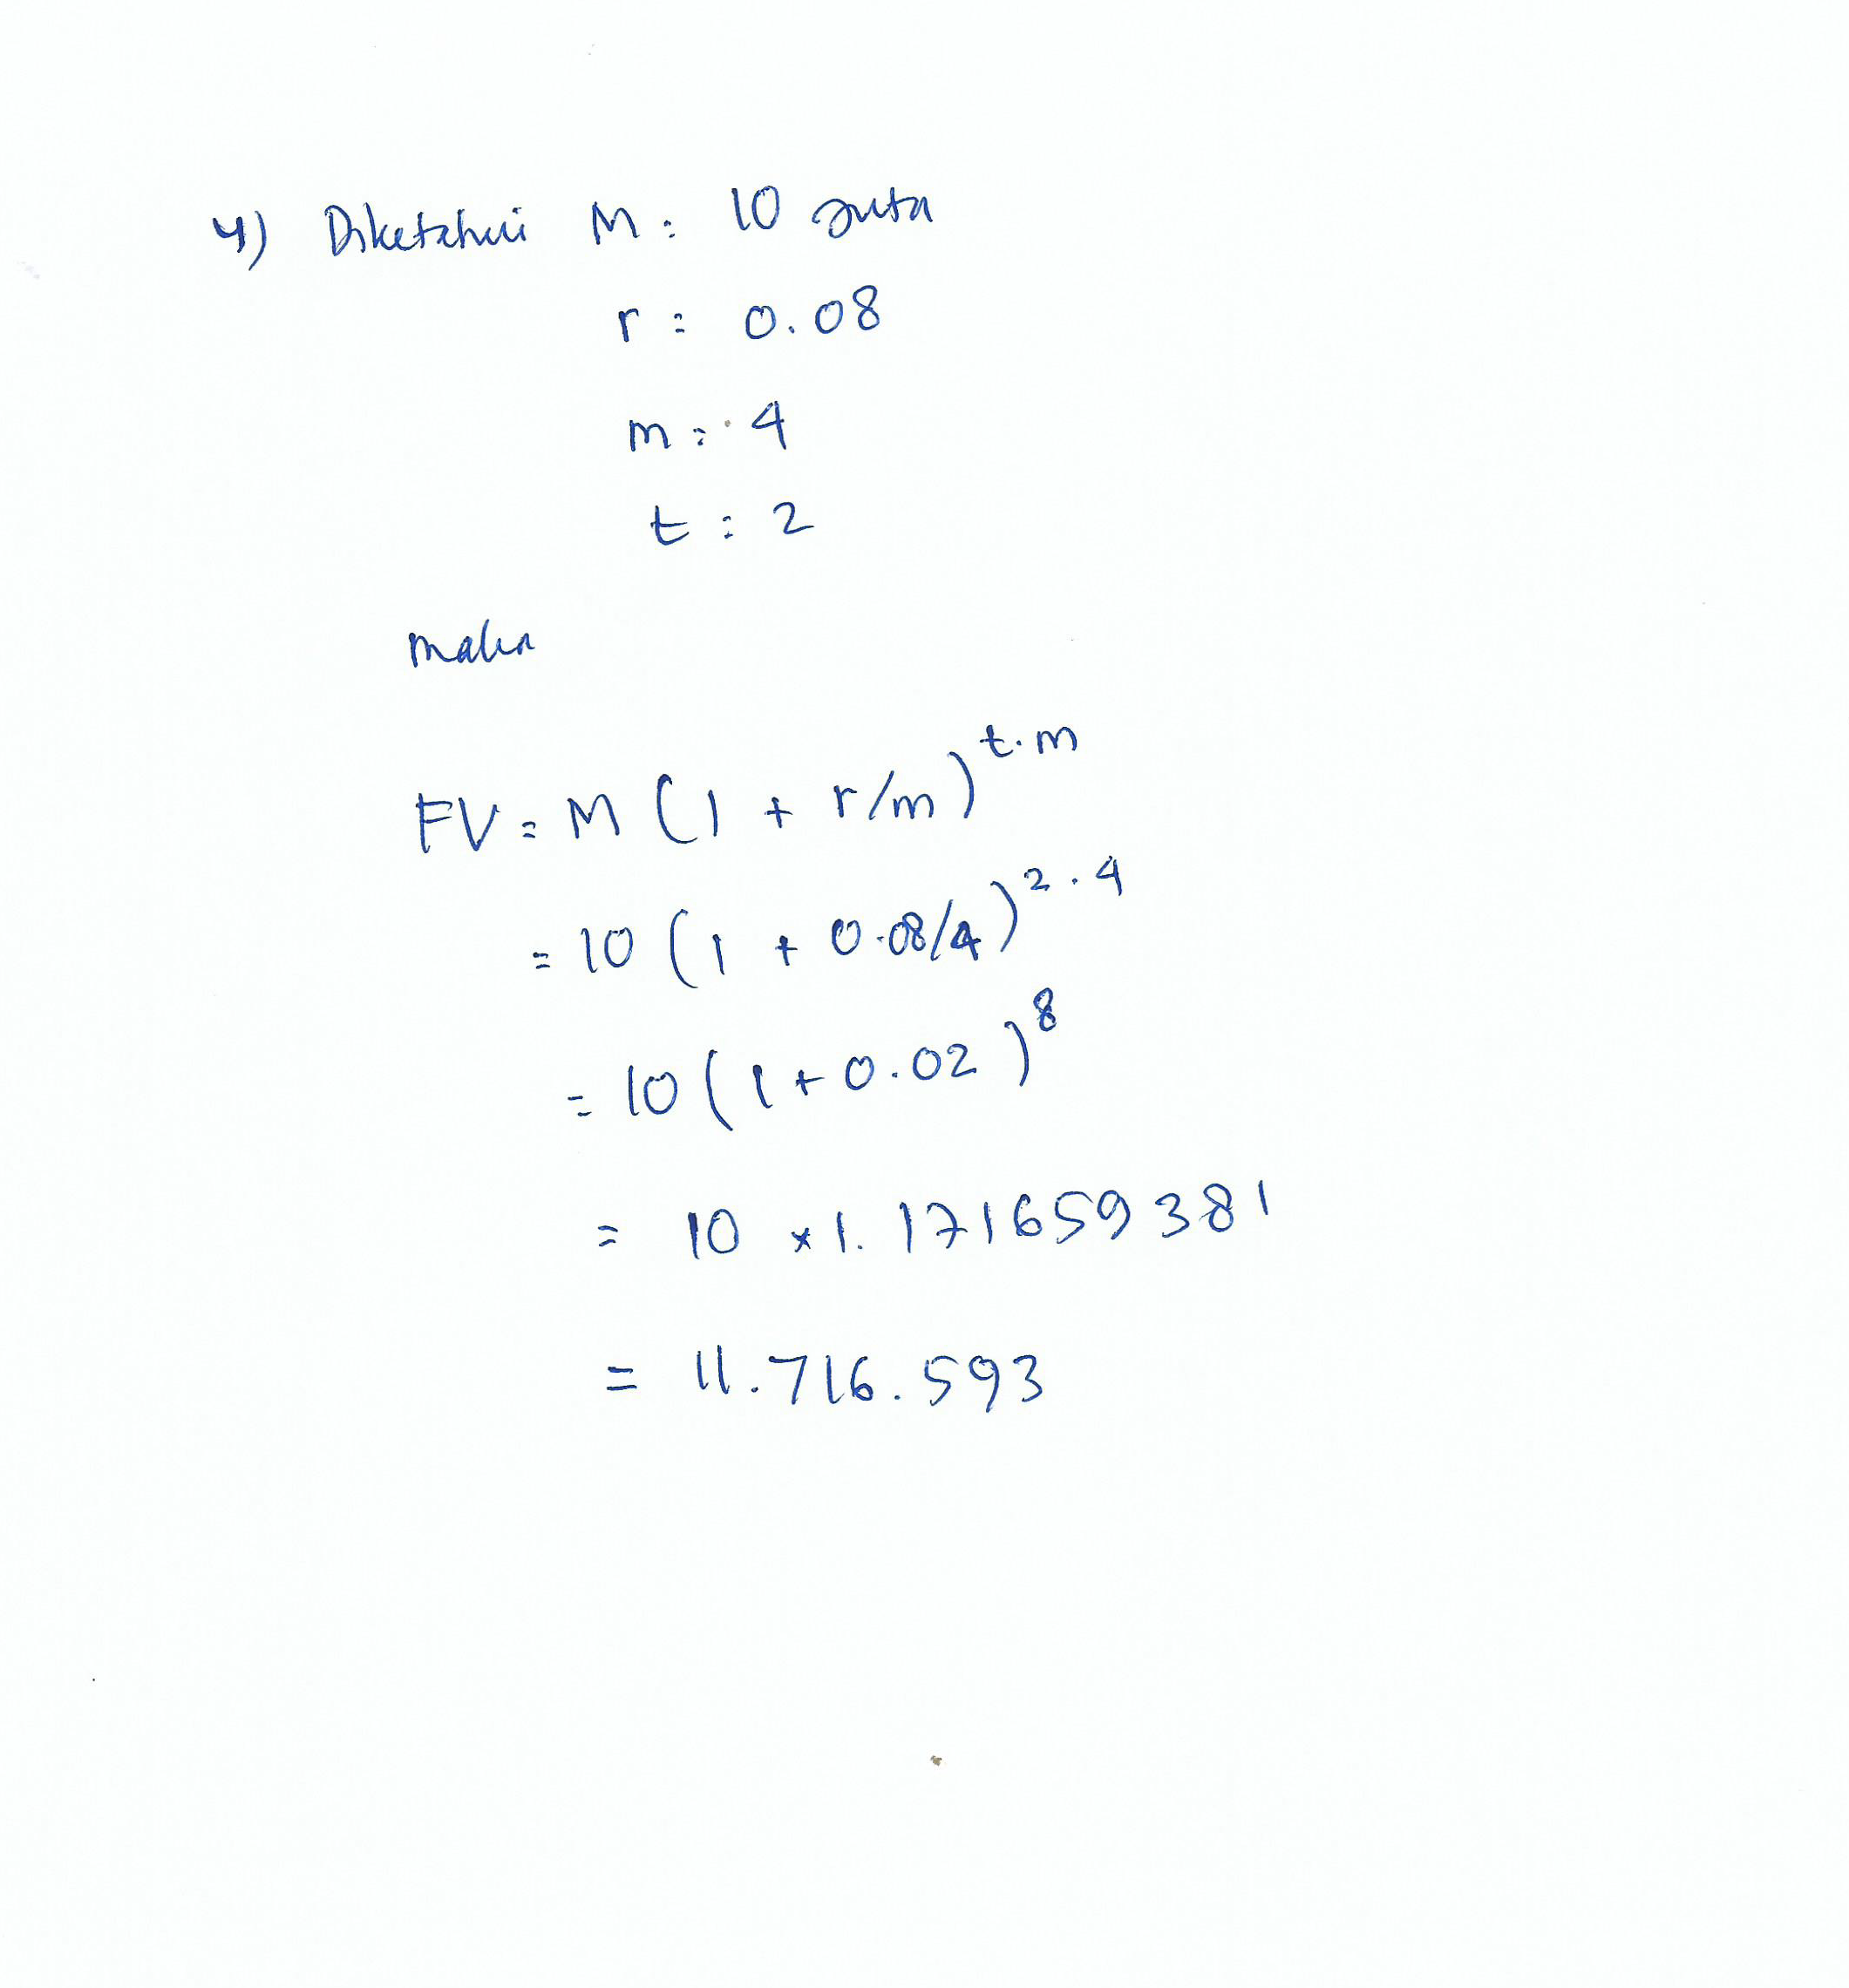 4) Diketahui M = 10 juta
r = 0.08
m = 4
t = 2
maka
FV = M (1 + r/m)^t.m
= 10 (1 + 0.08/4)^2.4
= 10 (1 + 0.02)^8
= 10 x 1.171659381
= 11.716.593